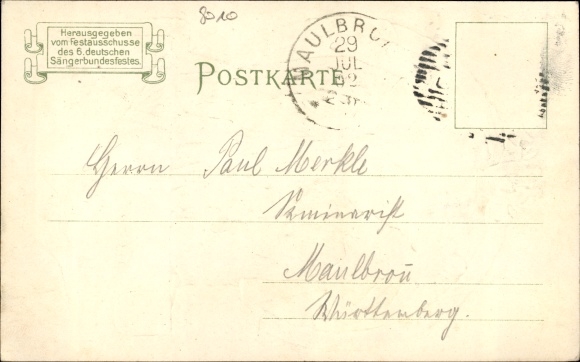 8010
Herausgegeben
vom Festausschusse
des 6. deutschen
Sängerbundesfestes.
MAULBRO
29
JUL
02
POSTKARTE
Herrn Paul Merkle
Seminarist
Maulbronn
Württemberg.